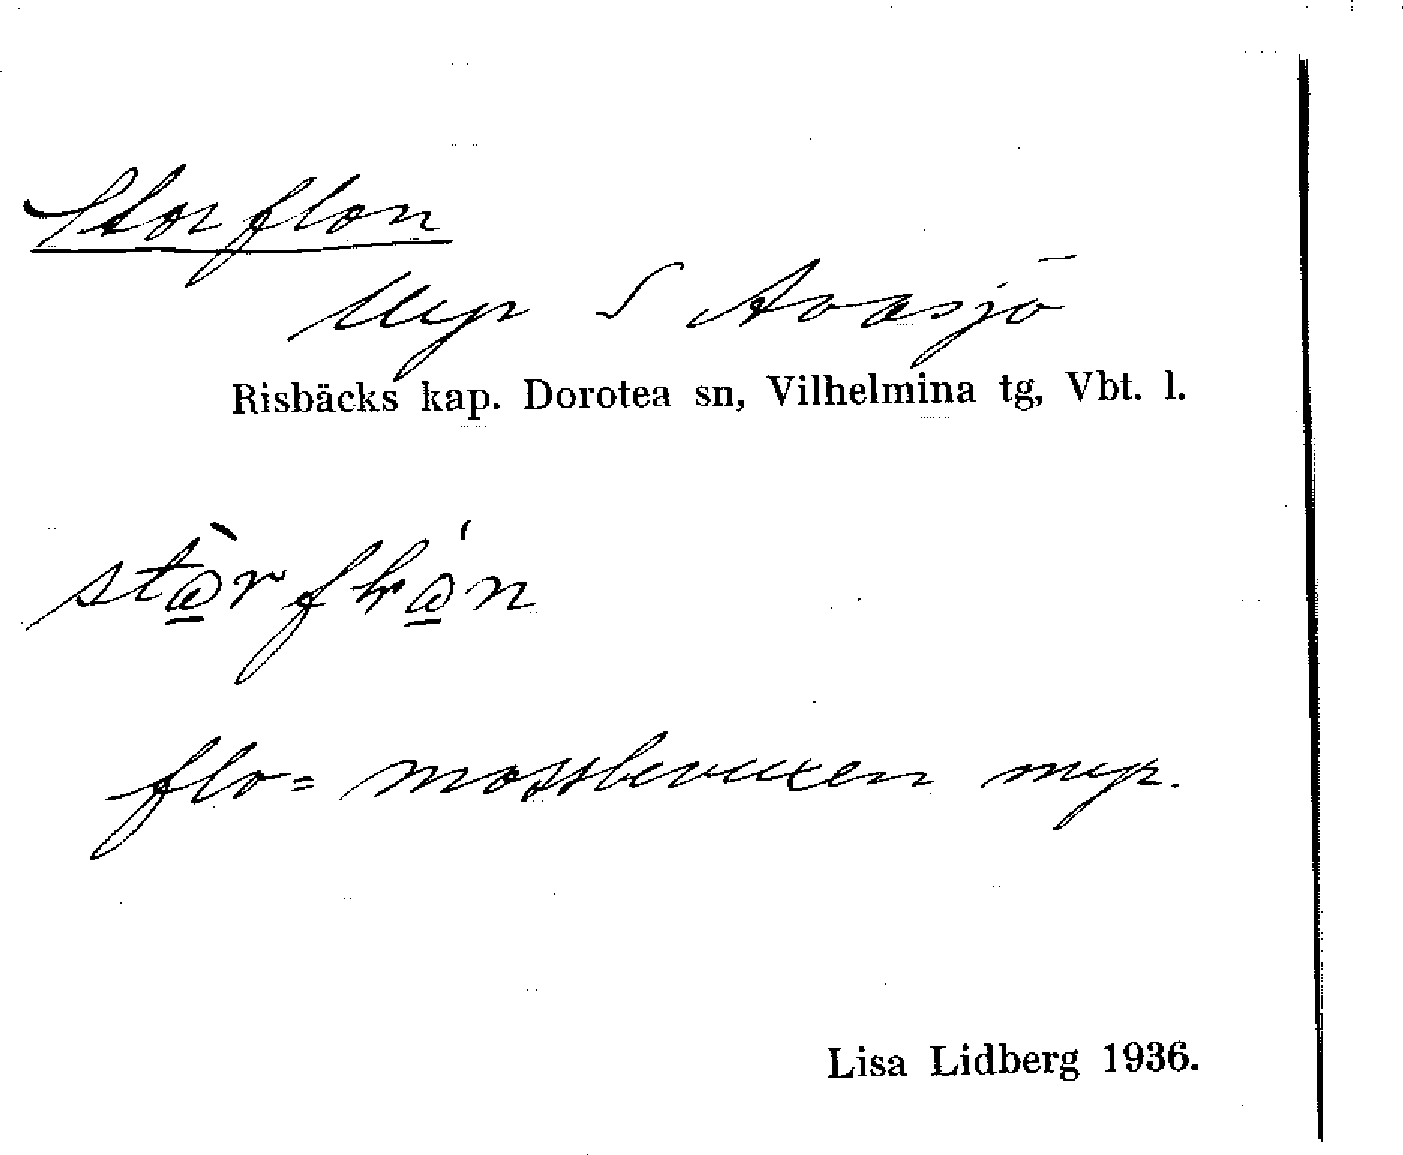 Storflon
Myr S Avasjö
Risbäcks kap. Dorotea sn, Vilhelmina tg, Vbt. l.
flo = mossbevuxen myr.
Lisa Lidberg 1936.